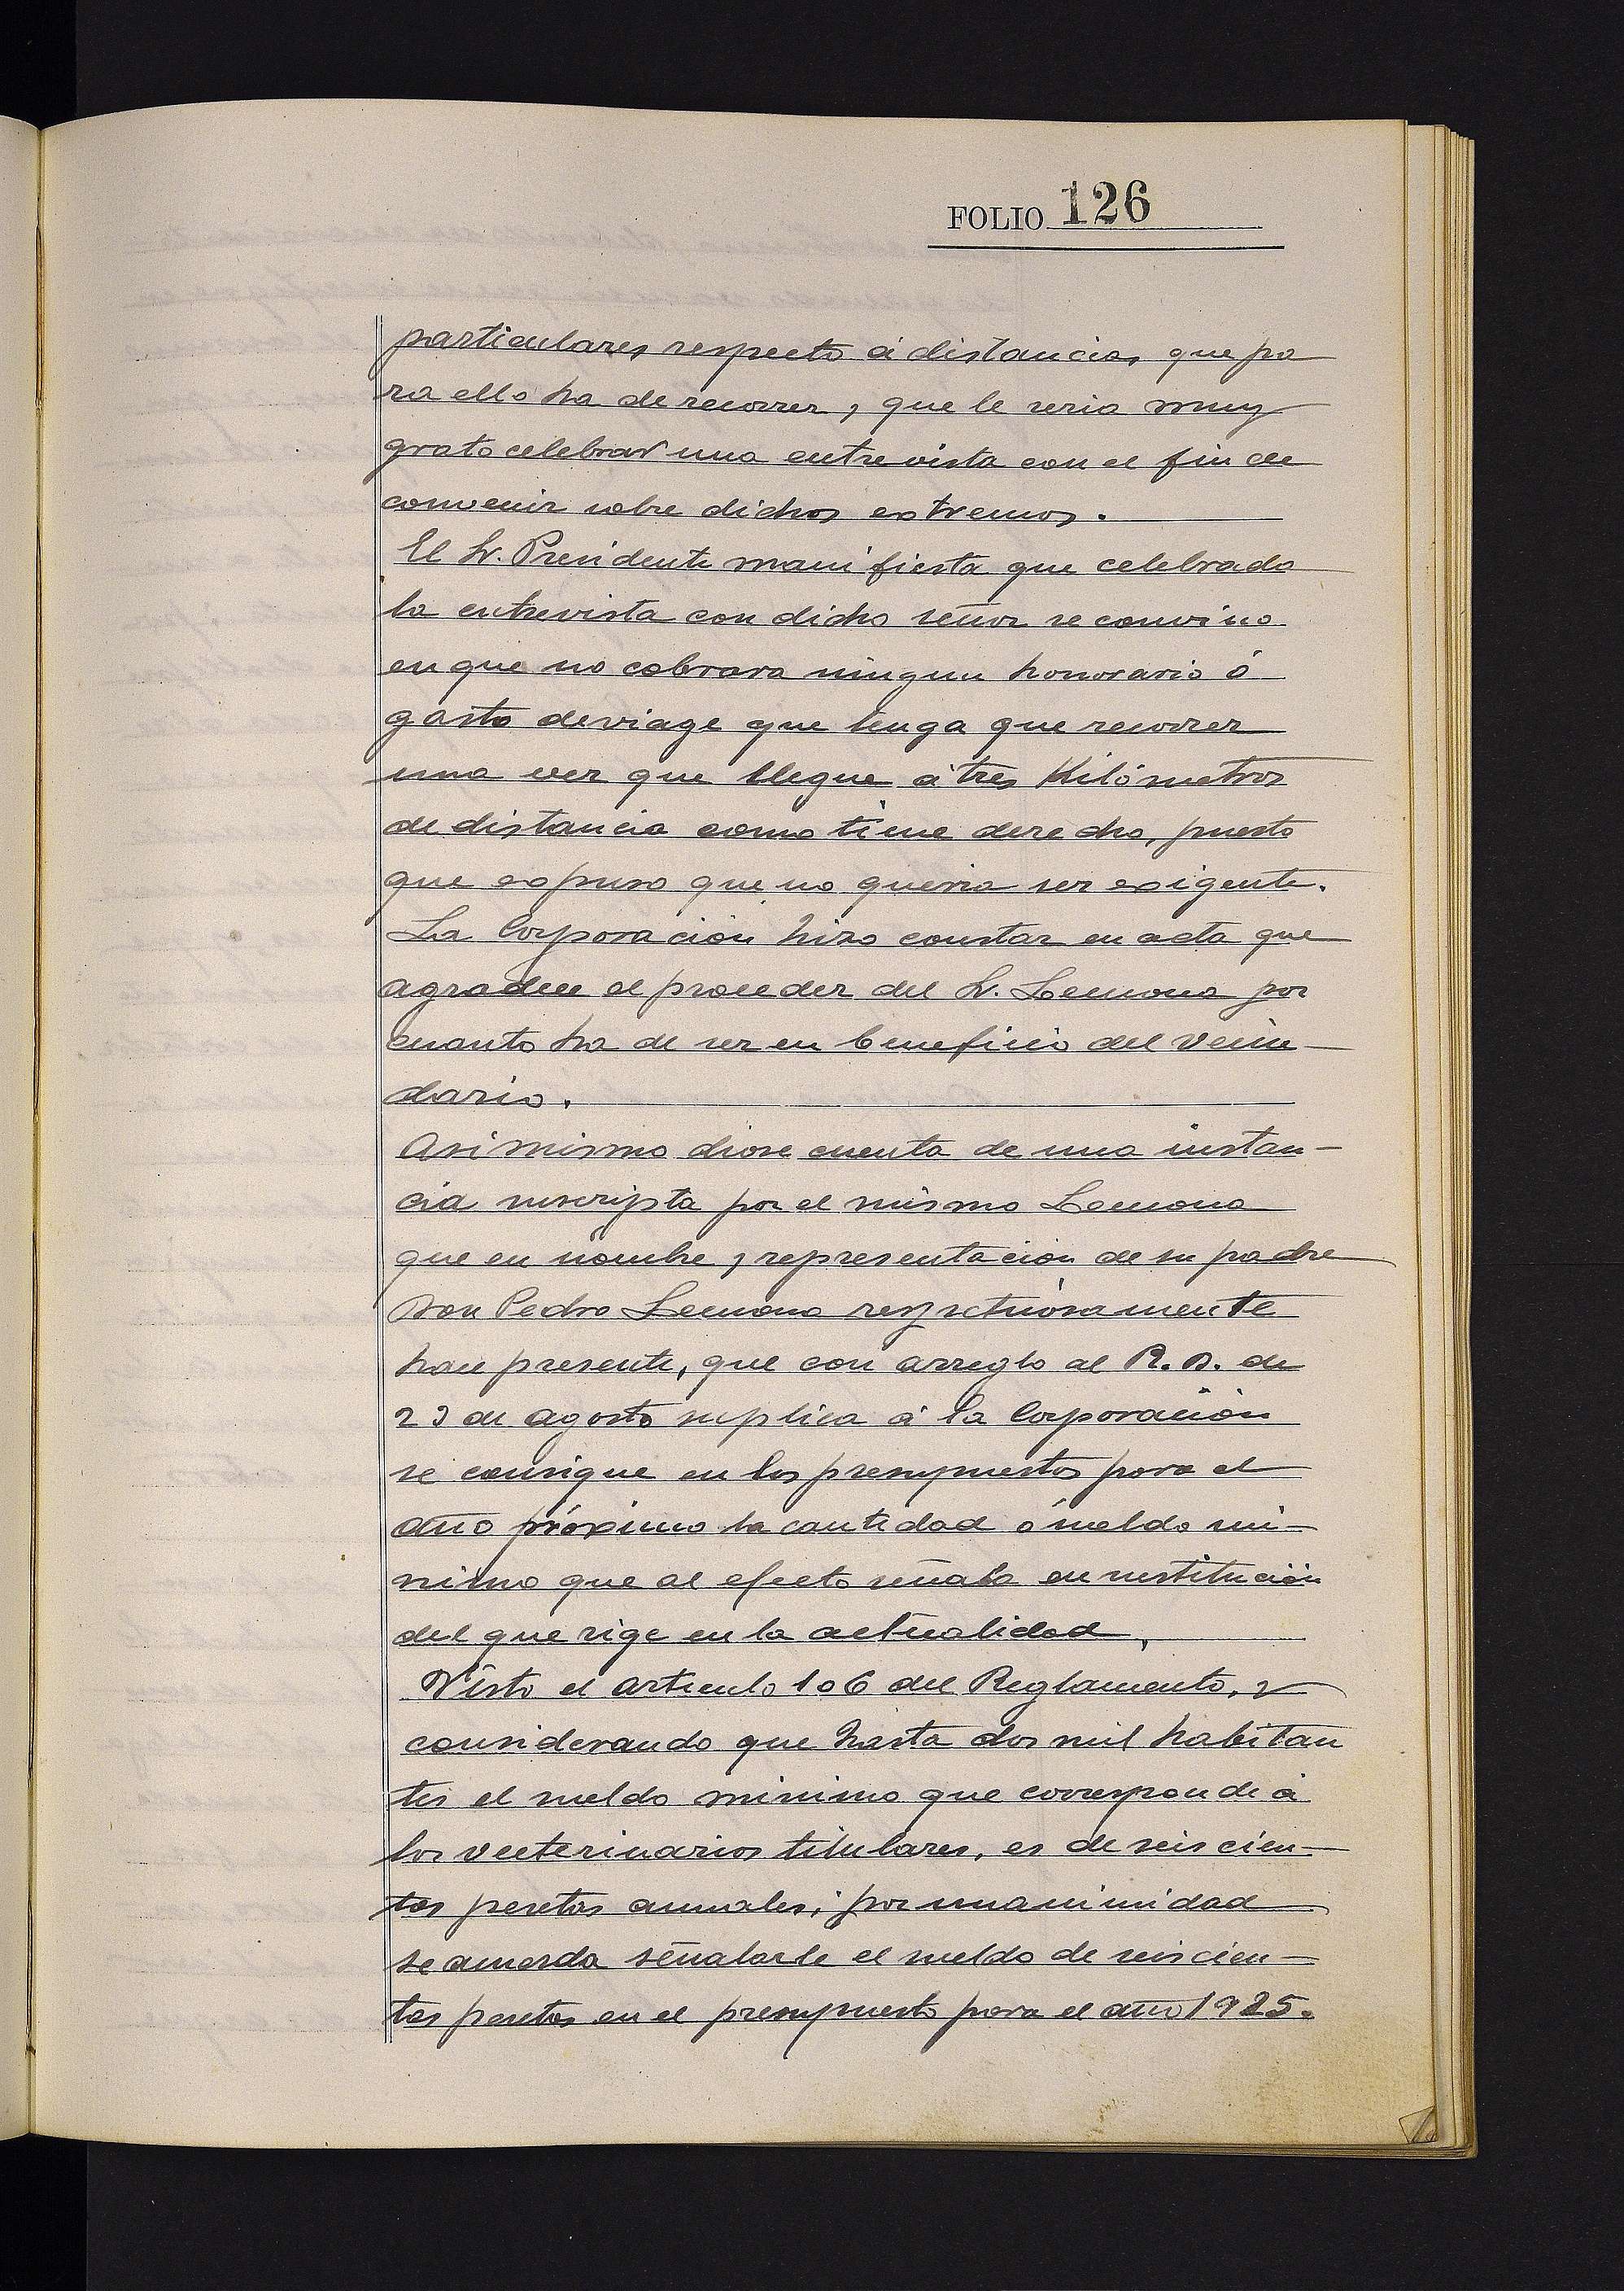 FOLIO 126
particulares respecto á distancias, que pa
ra ello ha de recorrer, y que le seria muy
grato celebrar una entrevista con el fin de
convenir sobre dichos extremos.
El Sr. Presidente manifiesta que celebrada
la entrevista con dicho señor se convino
en que no cobrara ningun honorario ó
gasto de viage que tenga que recorrer
una vez que llegue á tres Kilómetros
de distancia como tiene derecho, puesto
que expuso que no queria ser exigente.
La Corporación hizo constar en acta que
agradece el proceder del Sr. Lemona por
cuanto ha de ser en beneficio del vecin-
dario.
Asimismo diose cuenta de una instan-
cia suscripta por el mismo Lemona
que en nombre y representación de su padre
Don Pedro Lemona respetuósamente
hace presente, que con arreglo al R. D. de
23 de agosto suplica á la Corporación
se consigne en los presupuestos para el
año próximo la cantidad ó sueldo mi-
nimo que al efecto señala en sustitución
del que rige en la actualidad,
Visto el articulo 106 del Reglamento, y
considerando que hasta dos mil habitan
tes el sueldo minimo que corresponde á
los veeterinarios titulares, es de seiscien-
tas pesetas anuales; por unanimidad
se acuerda señalarle el sueldo de seiscien-
tas pesetas en el presupuesto para el año 1925.